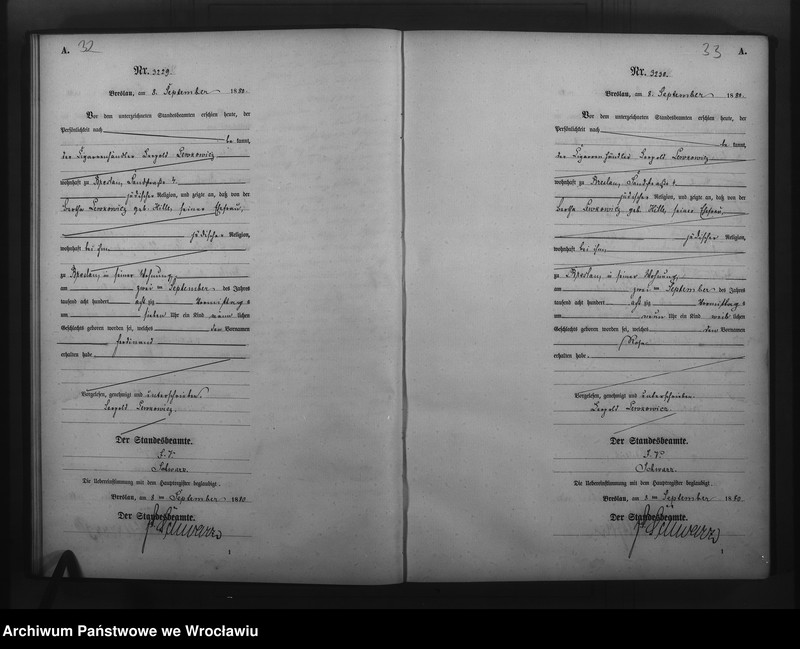 A. 32
Nr. 3229.
Breslau, am 8. September 1880.
Vor dem unterzeichneten Standesbeamten erschien heute, der
Persönlichkeit nach
be kannt,
der Cigarrenhändler Leopold Lewkowicz
wohnhaft zu Breslau, Sandstraße
jüdischer Religion, und zeigte an, daß von der
Lewkowicz geb. seiner Ehefrau,
jüdischer Religion,
wohnhaft bei ihm,
zu Breslau, in seiner Wohnung,
am zwei ten September des Jahres
tausend acht hundert acht zig Vormittag s
um sieben Uhr ein Kind männ lichen
Geschlechts geboren worden sei, welches den Vornamen
Ferdinand
erhalten habe
Vorgelesen, genehmigt und unterschrieben.
Leopold Lewkowicz.
Der Standesbeamte.
J. V.
Schwarz.
Die Uebereinstimmung mit dem Hauptregister beglaubigt.
Breslau, am 8 ten September 1880.
Der Standesbeamte.
Schwarz
1
33 A.
Nr. 3230.
Breslau, am 8. September 1880.
Vor dem unterzeichneten Standesbeamten erschien heute, der
Persönlichkeit nach
be kannt,
der Cigarrenhändler Leopold Lewkowicz
wohnhaft zu Breslau, Sandstraße
jüdischer Religion, und zeigte an, daß von der
Lewkowicz geb. seiner Ehefrau,
jüdischer Religion,
wohnhaft bei ihm,
zu Breslau, in seiner Wohnung,
am zwei ten September des Jahres
tausend acht hundert acht zig Vormittag s
um neun Uhr ein Kind weib lichen
Geschlechts geboren worden sei, welches den Vornamen
Rosa
erhalten habe.
Vorgelesen, genehmigt und unterschrieben
Leopold Lewkowicz
Der Standesbeamte.
J. V.
Schwarz.
Die Uebereinstimmung mit dem Hauptregister beglaubigt.
Breslau, am 8 ten September 1880.
Der Standesbeamte.
Schwarz
1
Archiwum Państwowe we Wrocławiu